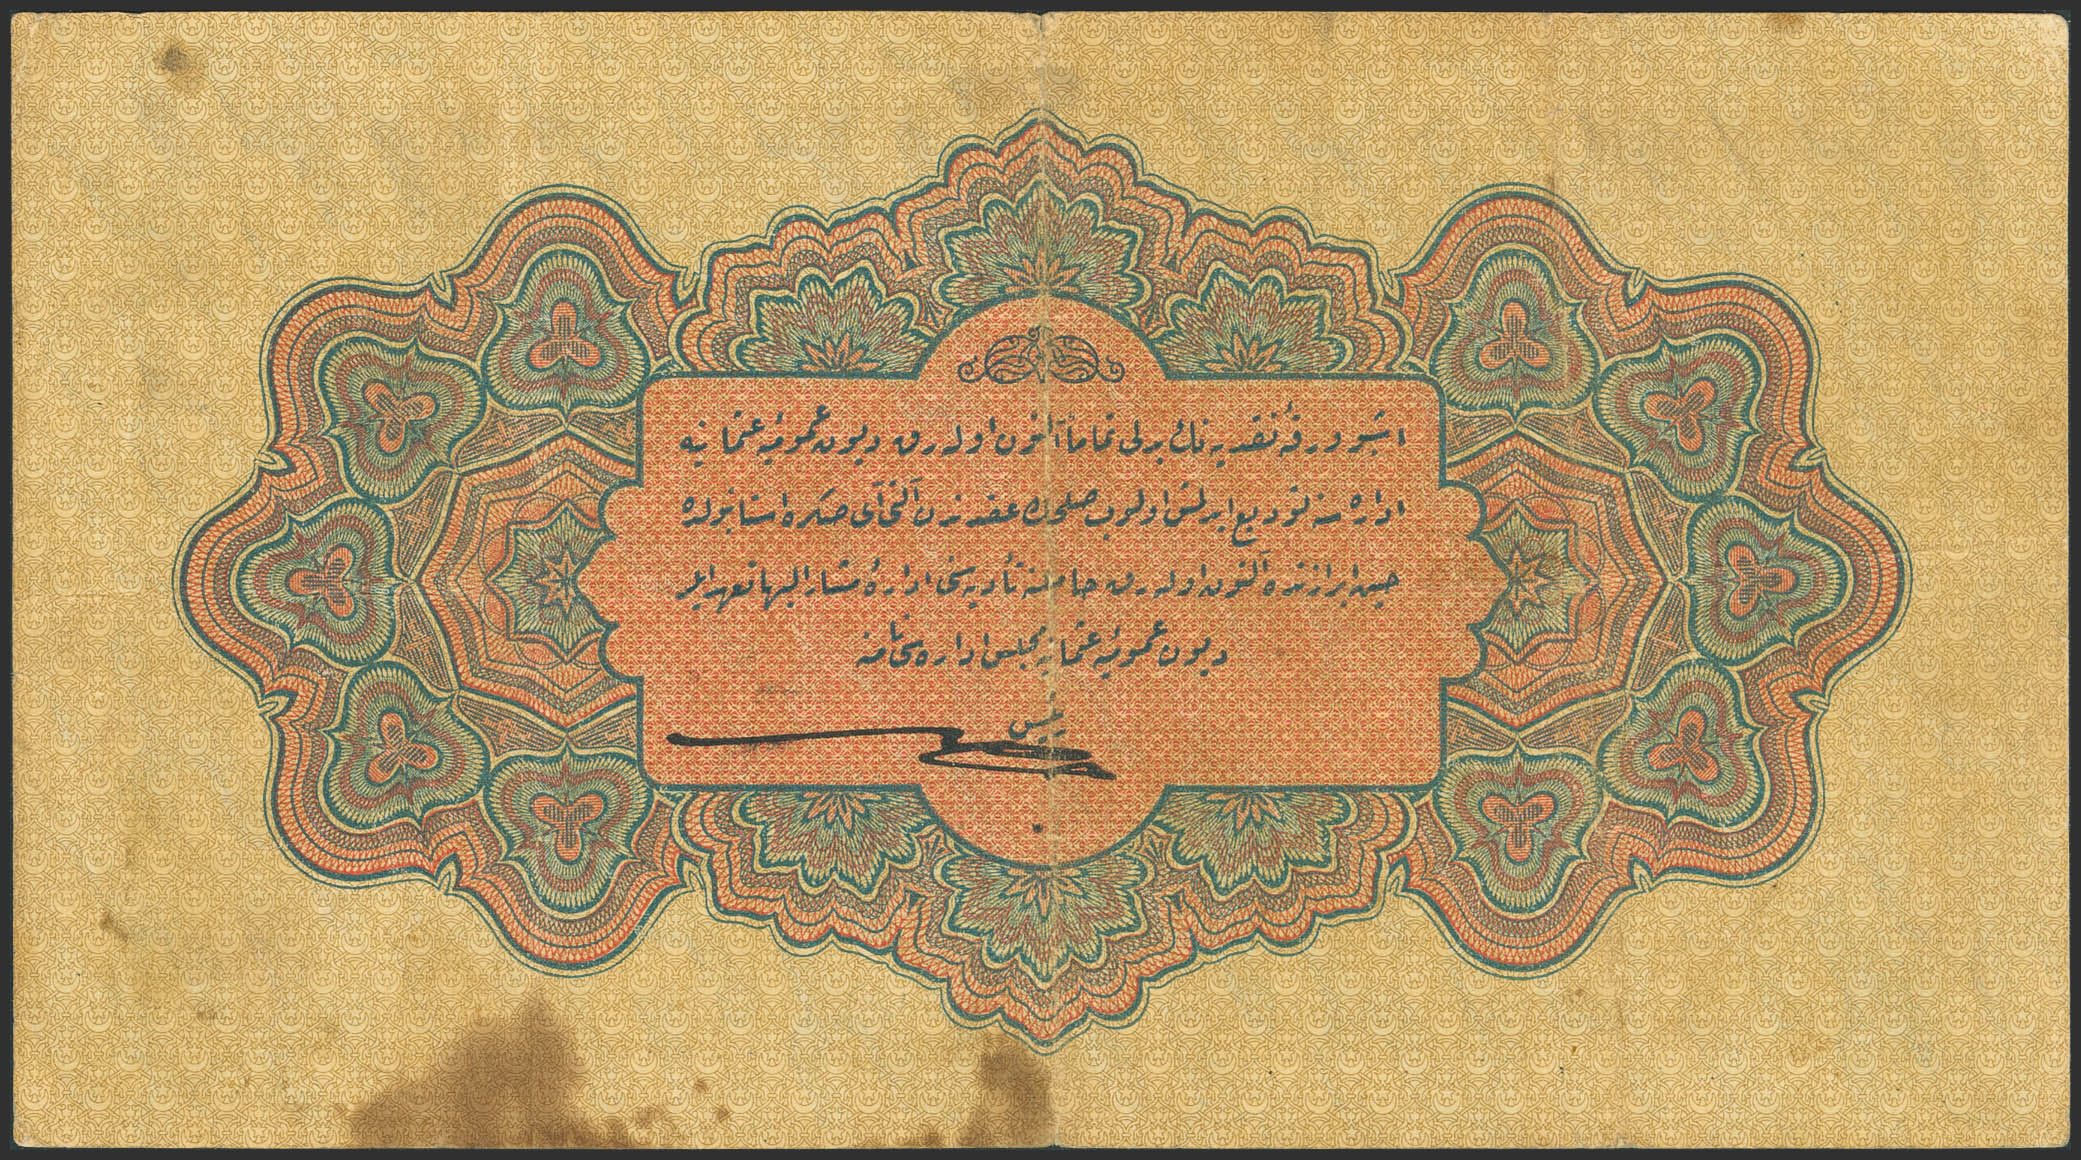 اشبو ورقهٔ نقديه‌نك بدلى تماماً آلتون اوله‌رق ديون عموميهٔ عثمانيه
اداره‌سنه توديع ايدلمش اولوب صلحك عقدندن آلتى آى صكره استانبولده
حين ابرازنده آلتون اوله‌رق حاملنه تأديه‌سنى ادارهٔ مشار اليها تعهد ايلر
ديون عموميهٔ عثمانيه مجلس اداره‌سى نامنه
رئيس